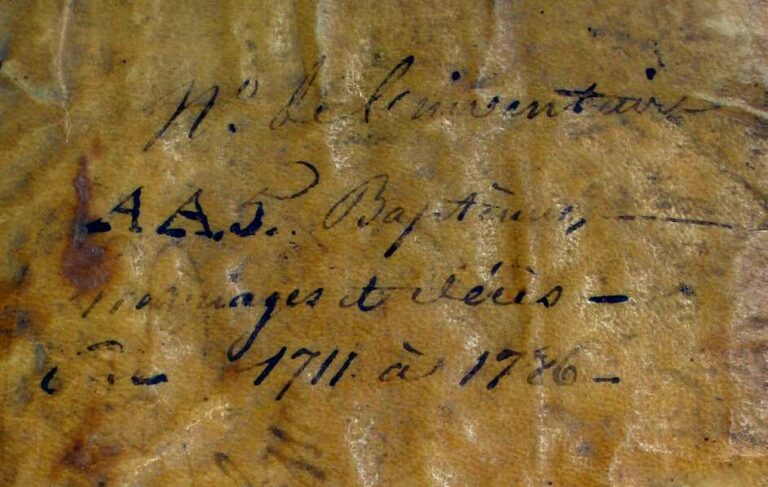 N.º de l'inventaire
AA.5. Baptêmes, —
Mariages et décès —
de 1711 à 1786 —